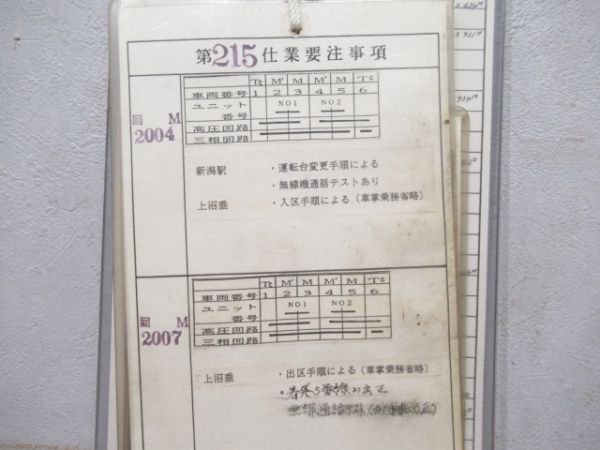 第215仕業要注事項
Tc M' M M' M Tc
車両番号 1 2 3 4 5 6
ユニット番号 NO1 NO2
高圧回路
三相回路
回 M
2004
新潟駅 ・運転台変更手順による
・無線機通話テストあり
上沼垂 ・入区手順による(車掌乗務省略)
Tc M' M M' M Tc
車両番号 1 2 3 4 5 6
ユニット番号 NO1 NO2
高圧回路
三相回路
回 M
2007
上沼垂 ・出区手順による(車掌乗務省略)
・着発5番線